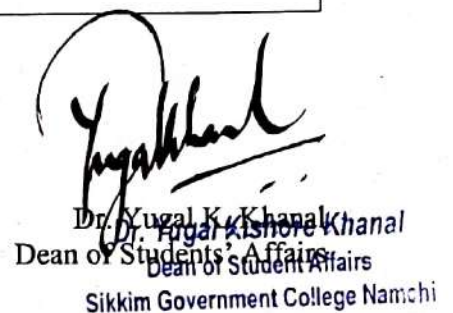 Yugalkhanal
Dr. Yugal K. Khanal
Dean of Students' Affairs
Dr. Yugal Kishore Khanal
Dean of Student Affairs
Sikkim Government College Namchi